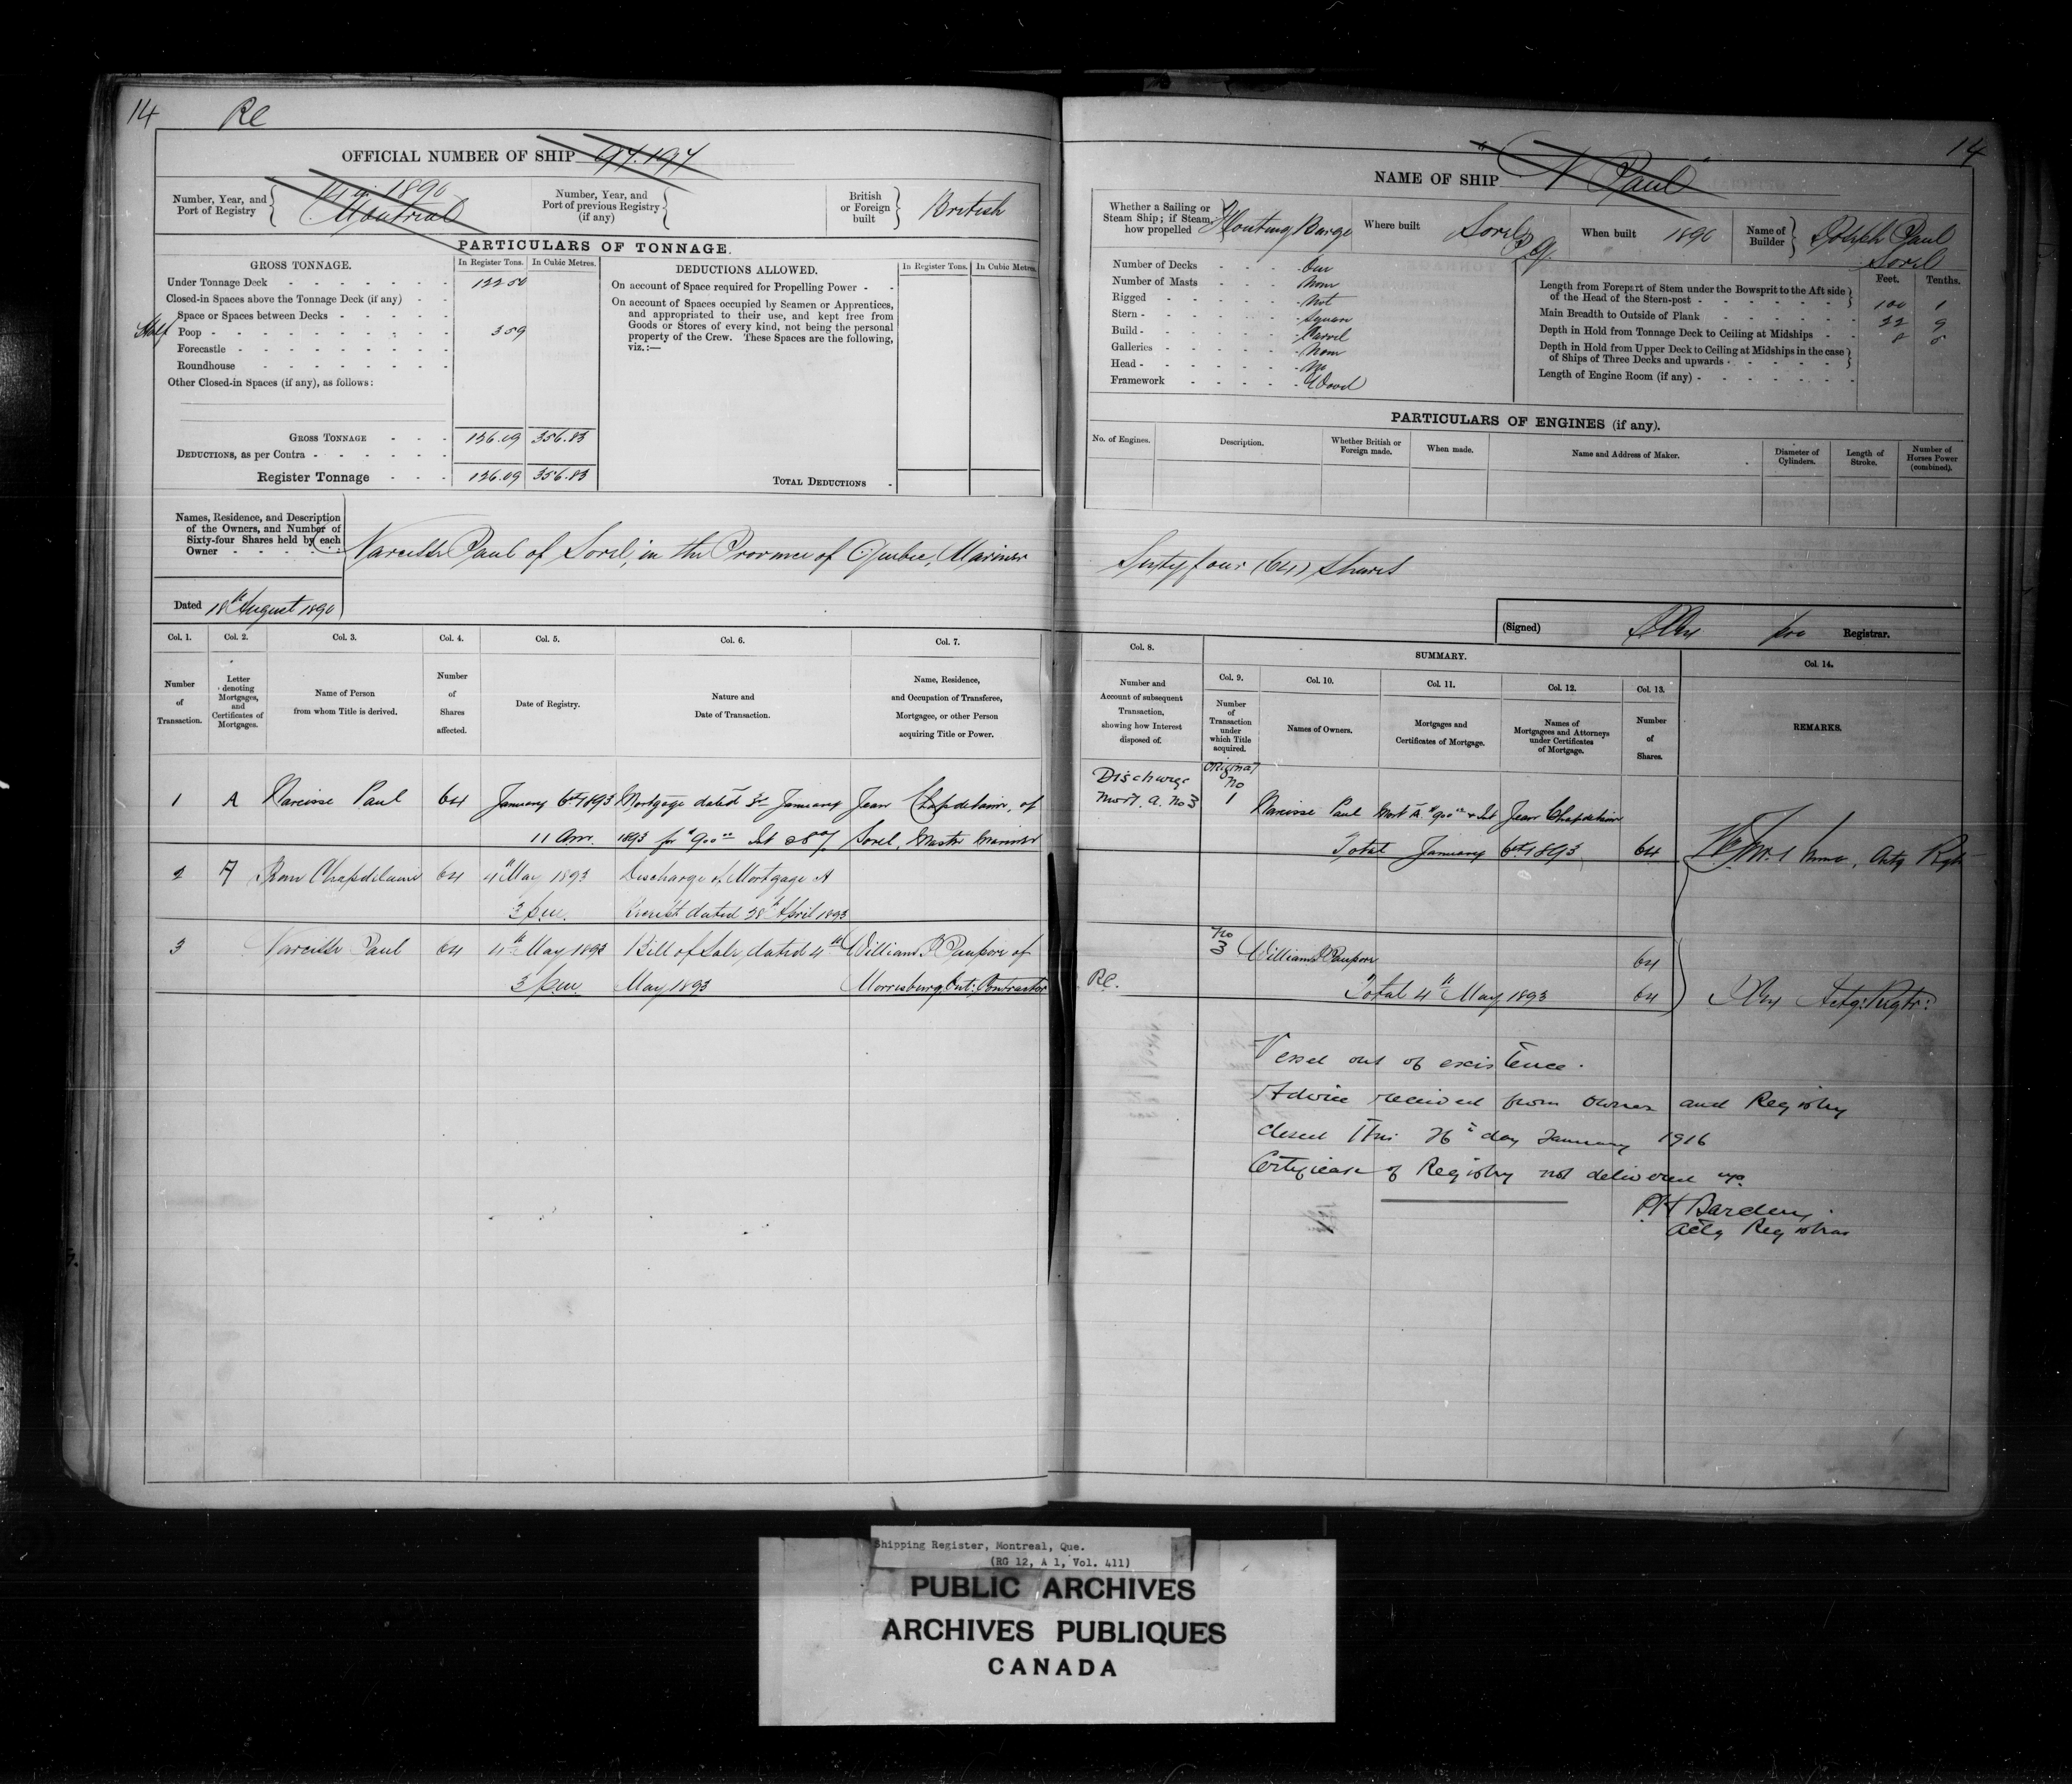 14 Re
OFFICIAL NUMBER OF SHIP 97.197
Number, Year, and Port of Registry 1890 Montreal
Number, Year, and Port of previous Registry (if any)
British or Foreign built British
PARTICULARS OF TONNAGE.
GROSS TONNAGE.
In Register Tons. In Cubic Metres.
Under Tonnage Deck 122.50
Closed-in Spaces above the Tonnage Deck (if any)
Space or Spaces between Decks
Half Poop 3 59
Forecastle
Roundhouse
Other Closed-in Spaces (if any), as follows:
GROSS TONNAGE 126.09 356.83
DEDUCTIONS, as per Contra
Register Tonnage 126.09 356.83
DEDUCTIONS ALLOWED.
In Register Tons. In Cubic Metres.
On account of Space required for Propelling Power
On account of Spaces occupied by Seamen or Apprentices,
and appropriated to their use, and kept free from
Goods or Stores of every kind, not being the personal
property of the Crew. These Spaces are the following,
viz.:—
TOTAL DEDUCTIONS
Names, Residence, and Description
of the Owners, and Number of
Sixty-four Shares held by each
Owner
Narcisse Paul of Sorel, in the Province of Quebec, Mariner
Dated 18th August 1890
Col. 1. Col. 2. Col. 3. Col. 4. Col. 5. Col. 6. Col. 7.
Number of Transaction.
Letter denoting Mortgages, and Certificates of Mortgages.
Name of Person from whom Title is derived.
Number of Shares affected.
Date of Registry.
Nature and Date of Transaction.
Name, Residence, and Occupation of Transferee, Mortgagee, or other Person acquiring Title or Power.
1 A Narcisse Paul 64 January 6th 1893 Mortgage dated 3rd January Jean Chapdelaine, of
11 Am. 1893 for $900 00 Int @ 8% Sorel, Master Mariner
2 A Chapdelaine 64 4th May 1893 Discharge of Mortgage A
3 p.m. Receipt dated 28th April 1893
3 Narcisse Paul 64 4th May 1893 Bill of Sale, dated 4th William
3 p.m. May 1893 Morrisburg, Ont: Contractor
14
NAME OF SHIP "N Paul"
Whether a Sailing or Steam Ship; if Steam, how propelled Floating Barge
Where built Sorel P.Q.
When built 1890
Name of Builder Joseph Paul Sorel
Number of Decks One
Number of Masts None
Rigged Not
Stern Square
Build Carvel
Galleries None
Head No
Framework Wood
Feet. Tenths.
Length from Forepart of Stem under the Bowsprit to the Aft side
of the Head of the Stern-post 100 1
Main Breadth to Outside of Plank 22 9
Depth in Hold from Tonnage Deck to Ceiling at Midships 8
Depth in Hold from Upper Deck to Ceiling at Midships in the case
of Ships of Three Decks and upwards
Length of Engine Room (if any)
PARTICULARS OF ENGINES (if any).
No. of Engines. Description. Whether British or Foreign made. When made. Name and Address of Maker. Diameter of Cylinders. Length of Stroke. Number of Horses Power (combined).
Sixty four (64) Shares
(Signed) pro Registrar.
Col. 8. SUMMARY. Col. 14.
Col. 9. Col. 10. Col. 11. Col. 12. Col. 13.
Number and Account of subsequent Transaction, showing how Interest disposed of.
Number of Transaction under which Title acquired.
Names of Owners.
Mortgages and Certificates of Mortgage.
Names of Mortgagees and Attorneys under Certificates of Mortgage.
Number of Shares.
REMARKS.
Discharge Original
Mort. A. No 3 No 1 Narcisse Paul Mort A. $900 00 & Int Jean Chapdelaine
Total January 6th 1893 64 Actg Rgtr
No 3 William 64
Re. Total 4th May 1893 64 Actg: Rgtr:
Vessel out of existence.
Advice received from owner and Registry
closed this 26th day January 1916
Certificate of Registry not delivered up.
Actg Registrar
Shipping Register, Montreal, Que.
(RG 12, A 1, Vol. 411)
PUBLIC ARCHIVES
ARCHIVES PUBLIQUES
CANADA